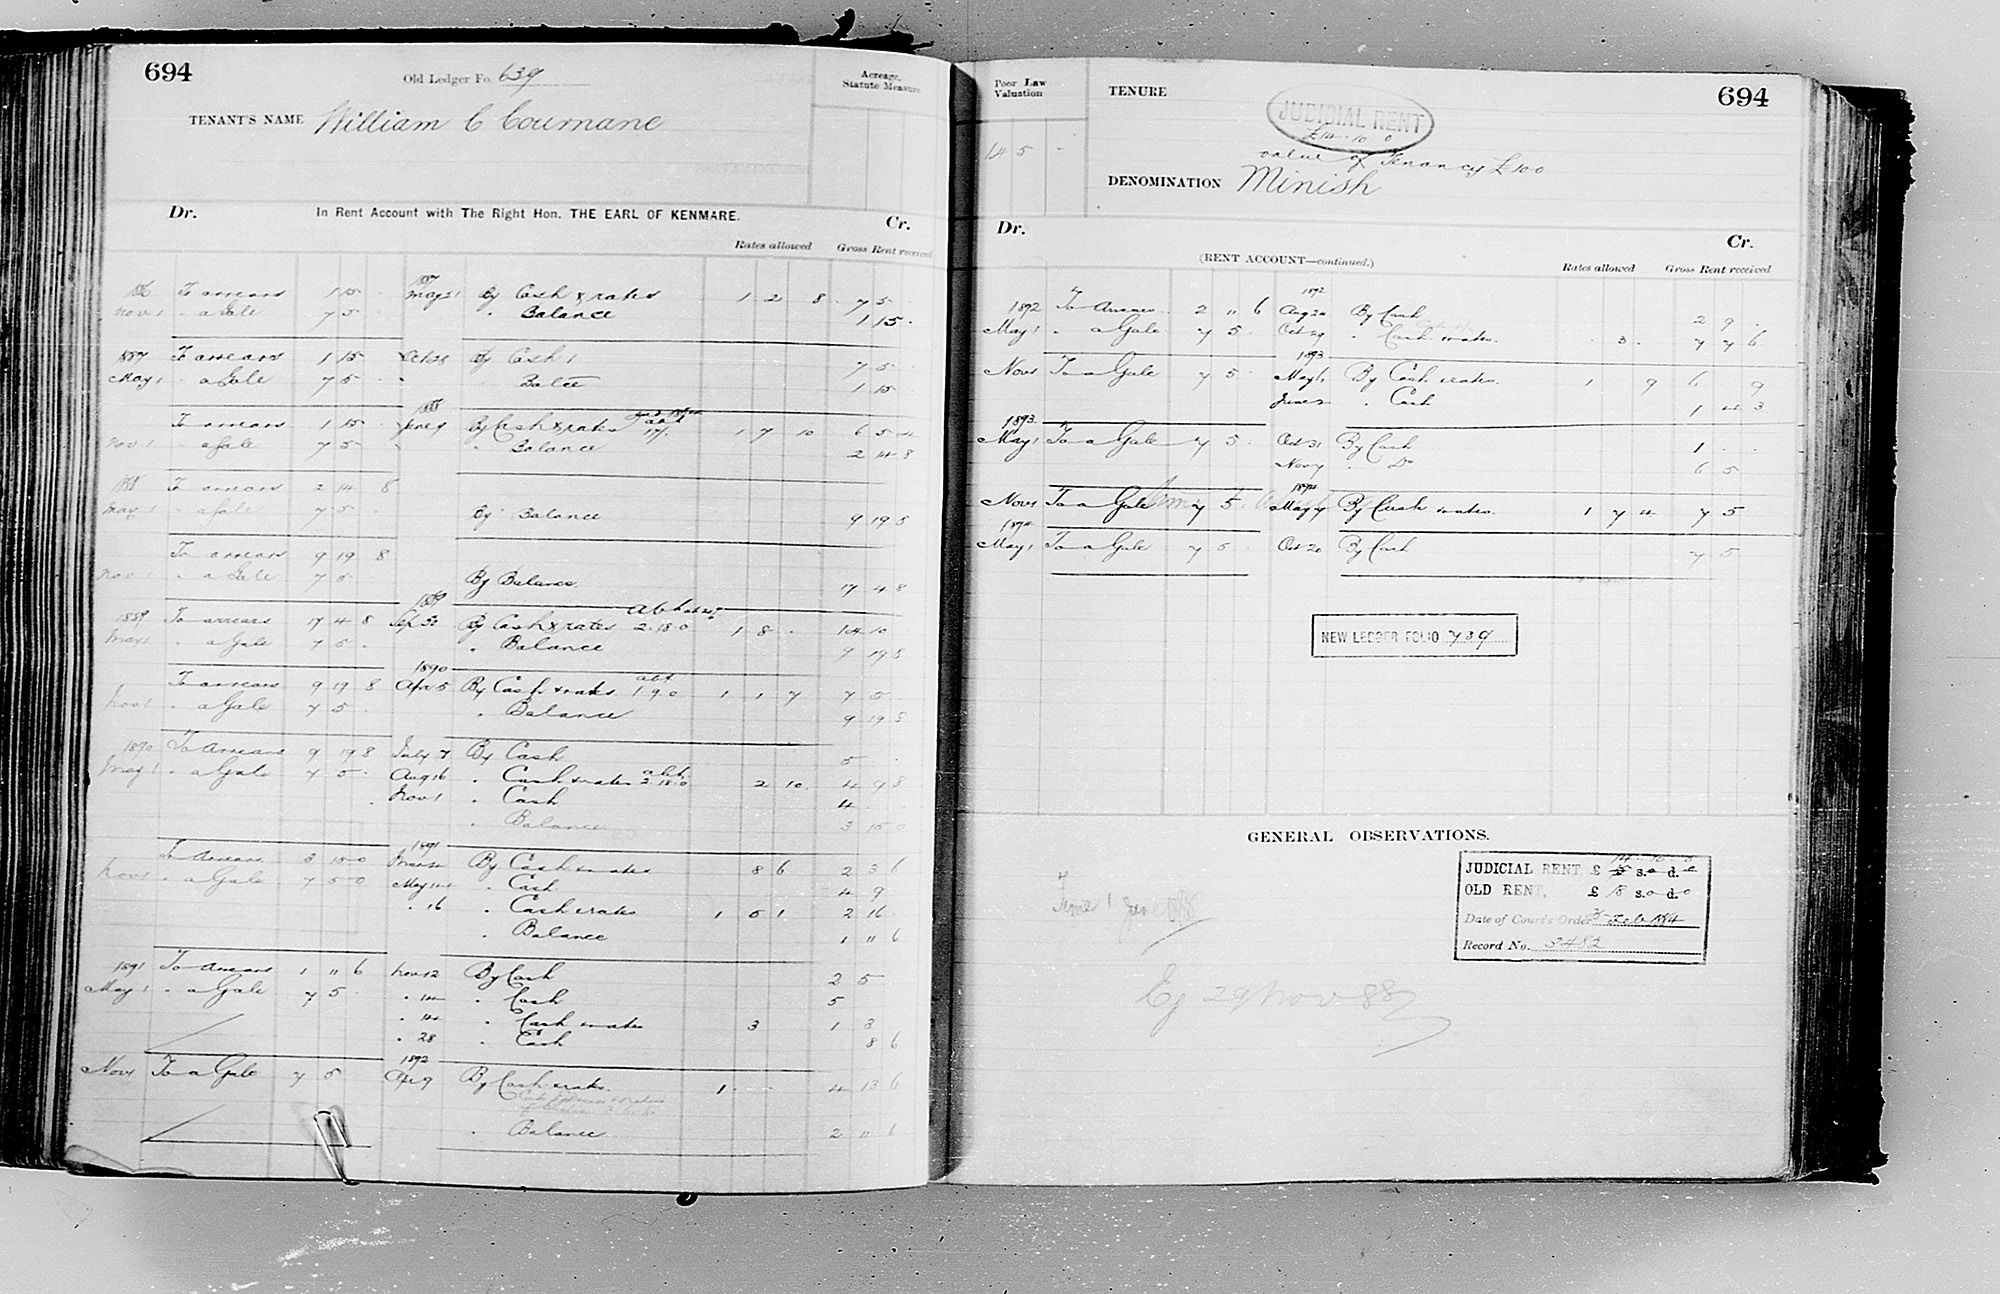 694
Old Ledger Fo. 639
Acreage, Statute Measure
TENANT'S NAME William C Cournane
Dr. In Rent Account with The Right Hon. THE EARL OF KENMARE. Cr.
Rates allowed Gross Rent received
1887
To arrears 1 15 May 21 By Cash & rates 1 2 8 7 5
Nov 1 " a Gale 7 5 " Balance 1 15
1887 To arrears 1 15 Oct 28 By Cash 7 5
May 1 " a Gale 7 5 " Balce 1 15
1888
To arrears 1 15 June 9 By Cash & rates 1 7 10 6 5 4
Nov 1 " a Gale 7 5 " Balance 2 14 8
1888 To arrears 2 14 8
May 1 " a Gale 7 5 By Balance 9 19 8
To arrears 9 19 8
Nov 1 " a Gale 7 5 By Balance 17 4 8
1889
1889 To arrears 17 4 8 Sep 30 By Cash & rates 2.18.0 1 8 14 10
May 1 " a Gale 7 5 " Balance 7 19 8
1890
To arrears 9 19 8 Apr 5 By Cash & rates abt 1 9 0 1 1 7 7 5
Nov 1 " a Gale 7 5 " Balance 9 19 8
1890 To Arrears 9 19 8 July 7 By Cash 5
May 1 " a Gale 7 5 Aug 16 " Cash & rates abt 2.18.0 2 10 4 9 8
Nov 1 " Cash 4
" Balance 3 15 0
1891
To Arrears 3 15 0 By Cash & rates 8 6 2 3 6
Nov 1 " a Gale 7 5 0 May 14 " Cash 4 9
" 16 " Cash & rates 1 5 1 2 16
" Balance 1 11 6
1891 To Arrears 1 11 6 Nov 12 By Cash 2 5
May 1 " a Gale 7 5 " 14 " Cash 5
" 14 " Cash & rates 3 1 3
" 28 " Cash 8 6
1892
Nov 1 To a Gale 7 5 Apr 9 By Cash & rates 1 4 13 6
" Balance 2 11 6
694
Poor Law Valuation
TENURE
JUDICIAL RENT
£14 . 10 . 0
14 5
value of Tenancy £100
DENOMINATION Minish
Dr. Cr.
(RENT ACCOUNT—continued.)
Rates allowed Gross Rent received
1892
1892 To Arrears 2 11 6 Aug 20 By Cash 2 9
May 1 " a Gale 7 5 Oct 29 " Cash & rates 3 7 7 6
1893
Nov 1 To a Gale 7 5 May 1 By Cash & rates 1 9 6 9
June 2 " Cash 1 4 3
1893
May 1 To a Gale 7 5 Oct 31 By Cash 1
Nov 7 " Do 6 5
1894
Nov 1 To a Gale 7 5 May 7 By Cash & rates 1 7 4 7 5
1894
May 1 To a Gale 7 5 Oct 20 By Cash 7 5
NEW LEDGER FOLIO 739
GENERAL OBSERVATIONS.
JUDICIAL RENT, £ 14 10 0 s. d.
OLD RENT, £ 18 s. 0 d. 0
Date of Court's Order Feb 1884
Record No. 3482
June
Ej 29 Nov 88